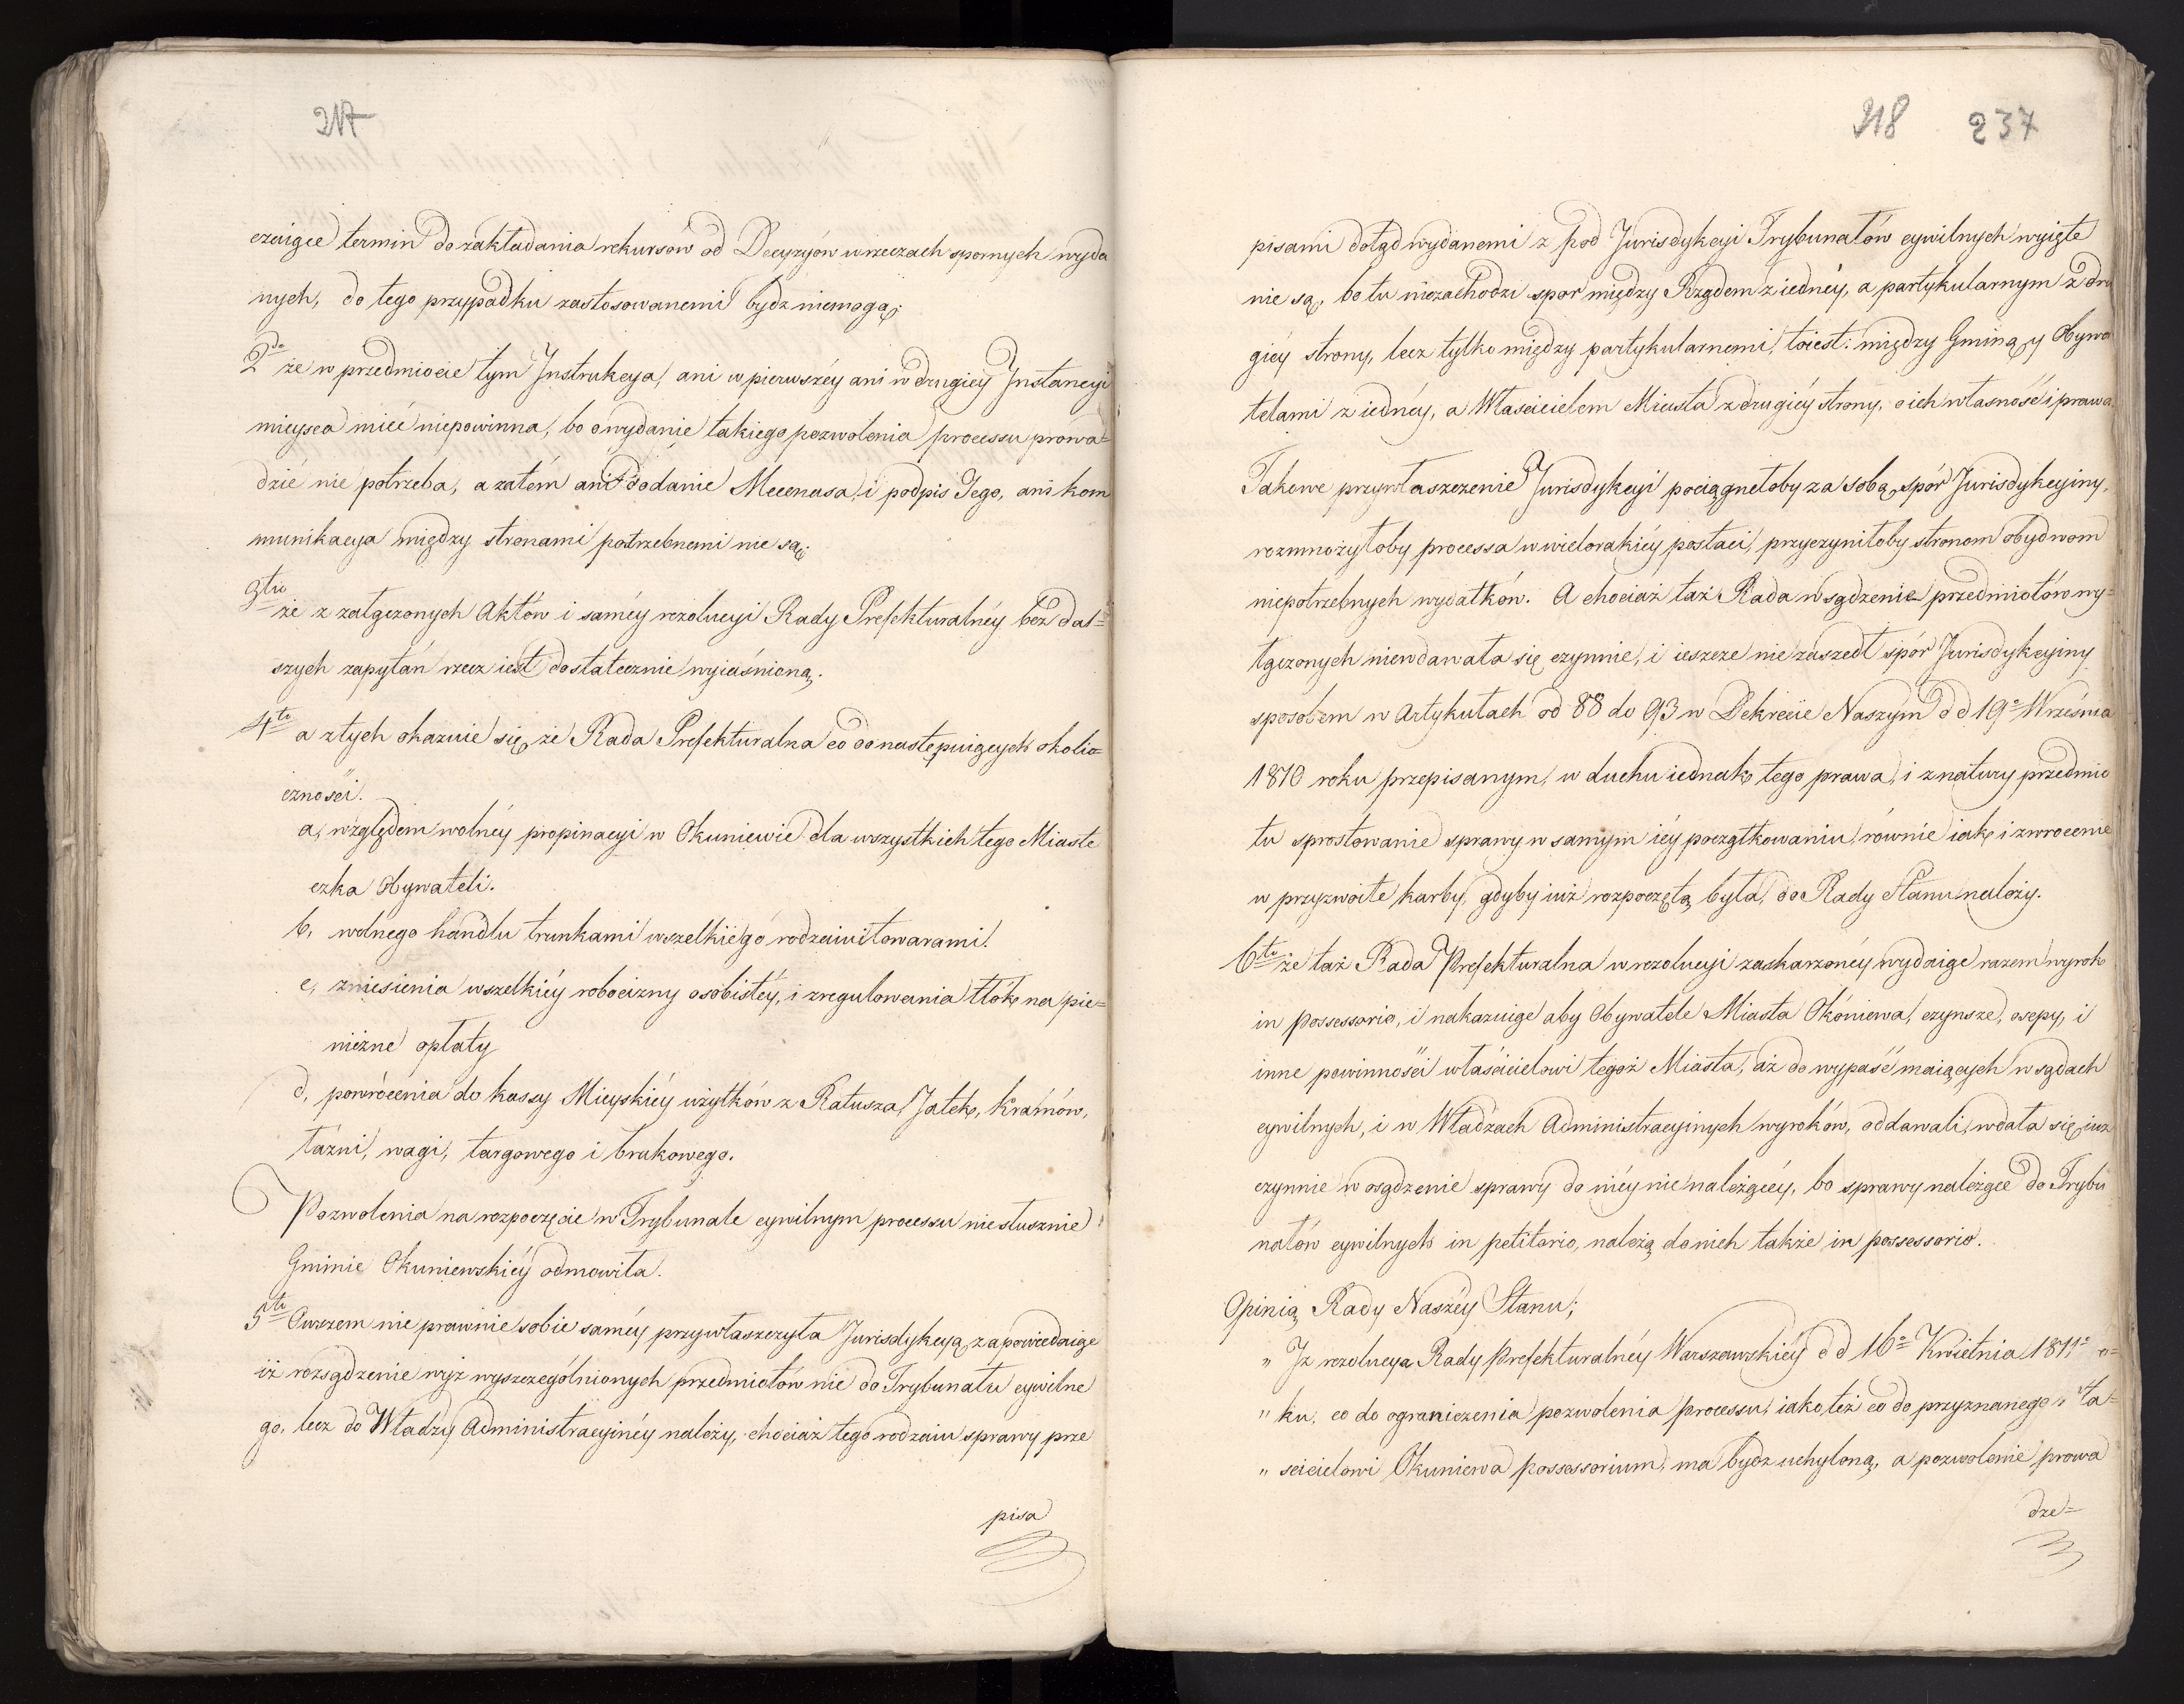 217
czaiące termin do zakładania rekursów od Decyzyów w rzeczach spornych wyda
nych, do tego przypadku zastosowanemi bydz niemogą;
2do że w przedmiocie tym Instrukcya, ani w pierwszéy ani w drugiéy Instancyi
mieysca mieć niepowinna, bo o wydanie takiego pozwolenia processu prowa=
dzić nie potrzeba, a zatém ani dodanie Mecenasa, i podpis Jego, ani kom
munikacya między stronami potrzebnemi nie są;
3tio że z załączonych Aktów i saméy rezolucyi Rady Prefekturalnéy bez dal=
szych zapytań rzecz iest dostatecznie wyiaśnioną.
4to a z tych okazuie się, że Rada Prefekturalna co do następuiących okoli=
czności.
a, względem wolnéy propinacyi w Okuniewie dla wszystkich tego Miaste
czka Obywateli.
b, wolnego handlu trunkami wszelkiego rodzaiu i towarami.
c, zniesienia wszelkiéy robocizny osobistéy, i zregulowania tłók na pie=
niężne opłaty
d, powrócenia do kassy Mieyskiéy użytków z Ratusza, Jatek, Kramów,
łaźni, wagi, targowego i brukowego.
Pozwolenia na rozpoczęcie w Trybunale cywilnym processu niesłusznie
Gminie Okuniewskiéy odmowiła.
5to Owszem nie prawnie sobie saméy przywłaszczyła Jurisdykcyą, zapowiedaiąc
iż rozsądzenie wyż wyszczególnionych przedmiotów nie do Trybunału cywilne
go, lecz do Władzy Administracyinéy należy, chociaż tego rodzaiu sprawy prze
pisa
218 237
pisami dotąd wydanemi z pod Jurisdykcyi Trybunałów cywilnych wyięte
nie są, bo tu niezachodzi spor między Rządem z iednéy, a partykularnym z dru
giéy strony, lecz tylko między partykularnemi, toiest: między Gminą y Obywa
telami z iednéy, a Właścicielem Miasta z drugiéy strony, o ich własność i prawa.
Takowe przywłaszczenie Jurisdykcyi pociągnęłoby za sobą, spór Jurisdykcyiny,
rozmnożyłoby processa w wielorakiéy postaci, przyczyniłoby stronom obydwom
niepotrzebnych wydatków. A chociaż taż Rada w sądzenie przedmiotów wy=
łączonych niewdawała się czynnie, i ieszcze nie zaszedł spór Jurisdykcyiny
sposobem w Artykułach od 88 do 93 w Dekrecie Naszym d d 19o Września
1810 roku przepisanym, w duchu iednak tego prawa, i z natury przedmio
tu sprostowanie sprawy w samym iéy początkowaniu, równie iak i zwrocenie
w przyzwoite karby, gdyby iuż rozpoczętą była, do Rady Stanu należy.
6to że taż Rada Prefekturalna w rezolucyi zaskarżonéy wydaiąc razem wyrok
in possessorio, i nakazuiąc aby Obywatele Miasta Okóniewa, czynsze, osepy, i
inne powinności właścicielowi tegoż Miasta, aż do wypaść maiących w sądach
cywilnych, i w Władzach Administracyinych wyroków, oddawali, wdała się iuż
czynnie w osądzenie sprawy do niéy nie należącéy, bo sprawy należące do Trybu
nałów cywilnych in petitorio, należą do nich także in possessorio.
Opinią Rady Naszéy Stanu;
" Iż rezolucya Rady Prefekturalnéy Warszawskiéy d d 16o Kwietnia 1811o ro=
" ku, co do ograniczenia pozwolenia processu, iako też co do przyznanego wła=
" ścicielowi Okuniewa possessorium, ma bydz uchyloną, a pozwolenie prowa
dze=